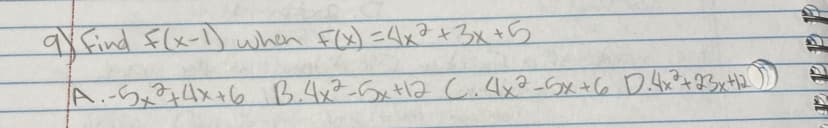 9) Find f(x-1) when f(x) = 4x² + 3x + 5
A. -5x² + 4x + 6 B. 4x² - 5x + 12 C. 4x² - 5x + 6 D. 4x² + 23x + 12